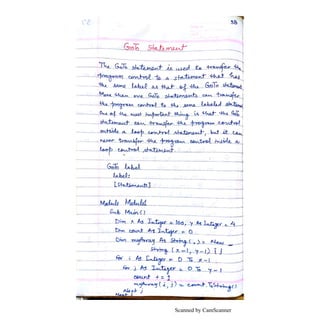 58
GoTo Statement
The GoTo statement is used to transfer the
program control to a statement that has
the same label as that of the GoTo statement.
More than one GoTo statements can transfer
the program control to the same labeled statement
One of the most important thing is that the GoTo
statement can transfer the program control
outside a loop control statement, but it can
never transfer the program control inside a
loop control statement.
GoTo label
label:
[Statements]
Module Module1
Sub Main()
Dim x As Integer = 100, y As Integer = 4
Dim count As Integer = 0
Dim myArray As String(,) = New _
String (x-1, y-1) { }
For i As Integer = 0 To x-1
For j As Integer = 0 To y-1
count += 1
myArray(i, j) = count.ToString()
Next j
Next i
Scanned by CamScanner